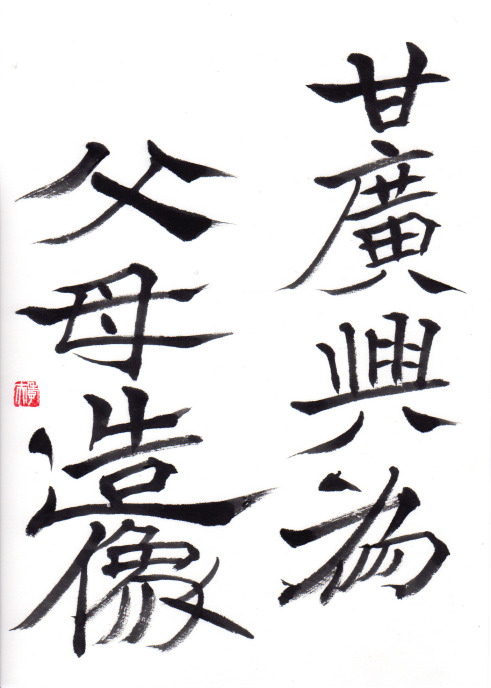 甘廣興為
父母造像